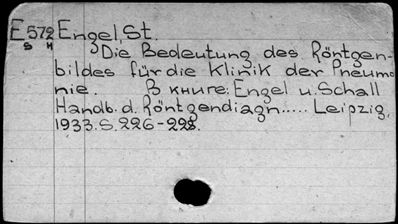 E572 Engel, St.
S H
Die Bedeutung des Röntgen-
bildes für die Klinik der Pneumo
nie. В книге: Engel u. Schall
Handb. d. Röntgendiagn..... Leipzig,
1933. S. 226-228.